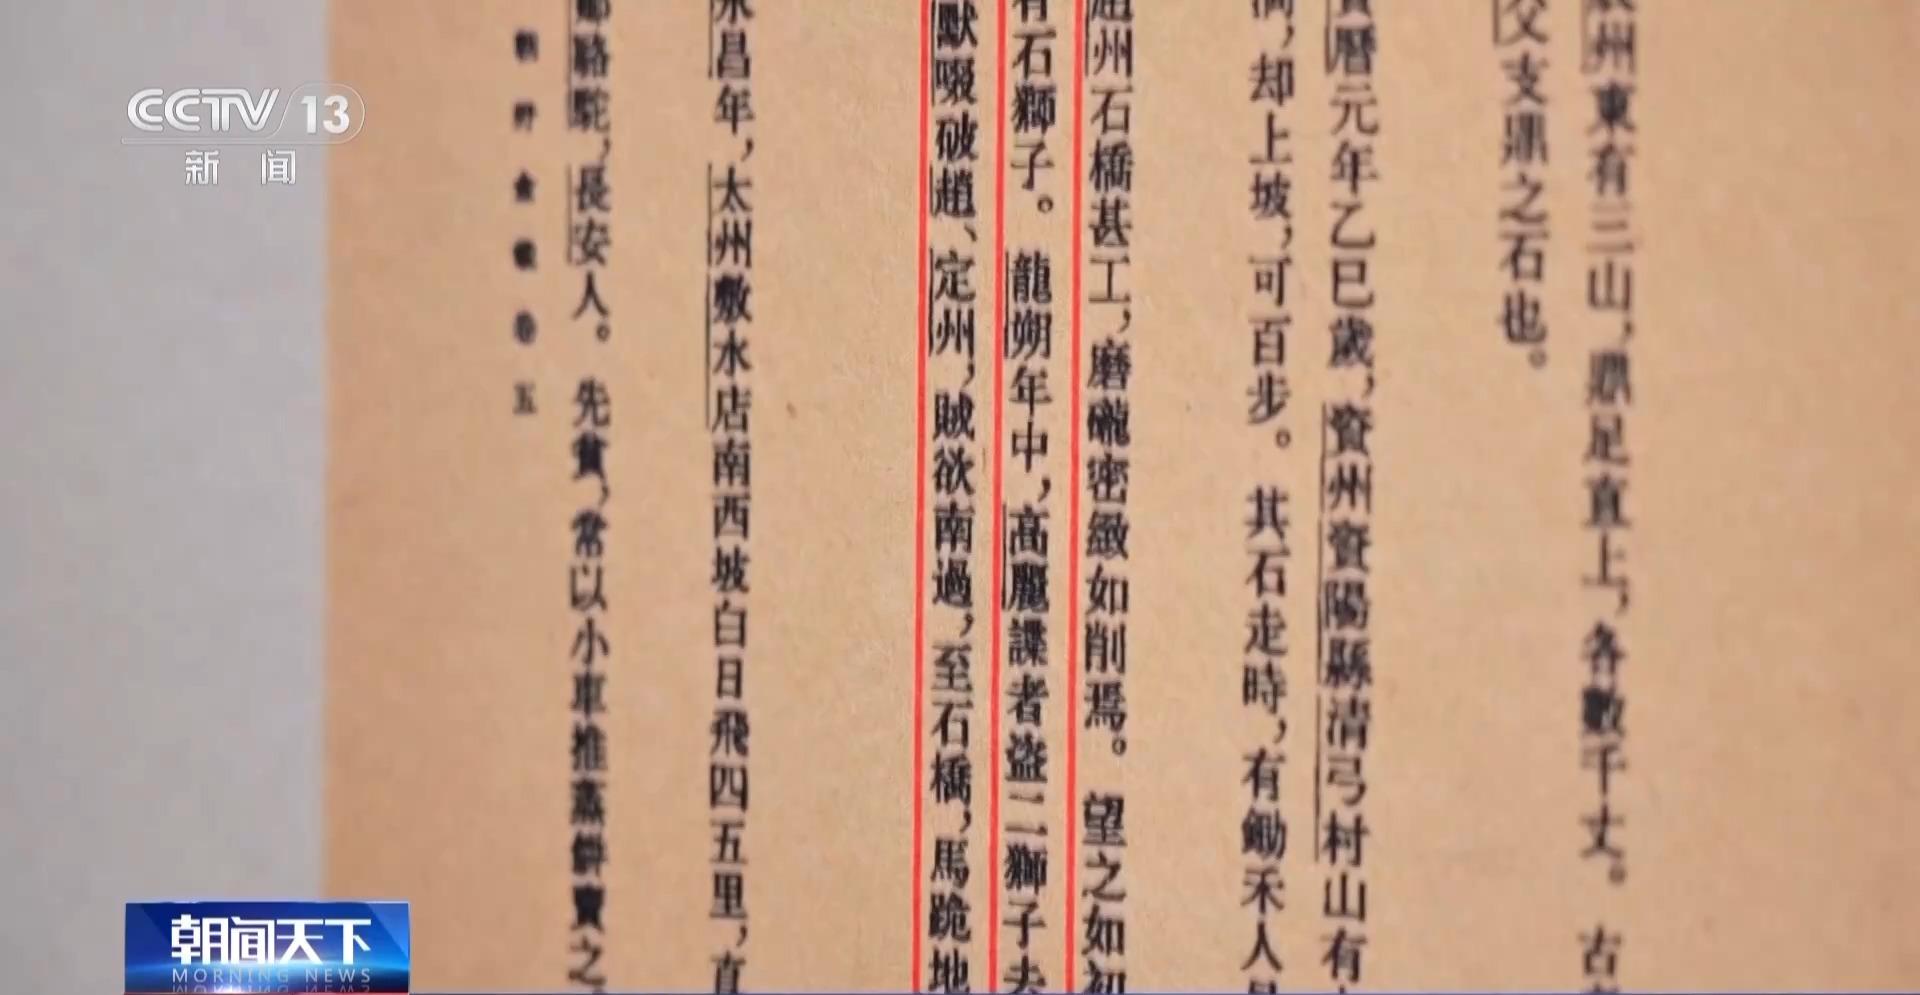 CCTV 13
新闻
州東有三山，鼎足直上，各數千丈。古
父支鼎之石也。
曆元年乙巳歲，資州資陽縣清弓村山有
，却上坡，可百步。其石走時，有鋤禾人
趙州石橋甚工，磨礲密緻如削焉。望之如初
有石獅子。龍朔年中，高麗諜者盜二獅子去
默啜破趙、定州，賊欲南過，至石橋，馬跪地
永昌年，太州敷水店南西坡白日飛四五里，直
鄒駱駝，長安人。先貧，常以小車推蒸餅賣之。
朝野僉載卷五
朝闻天下
MORNING NEWS